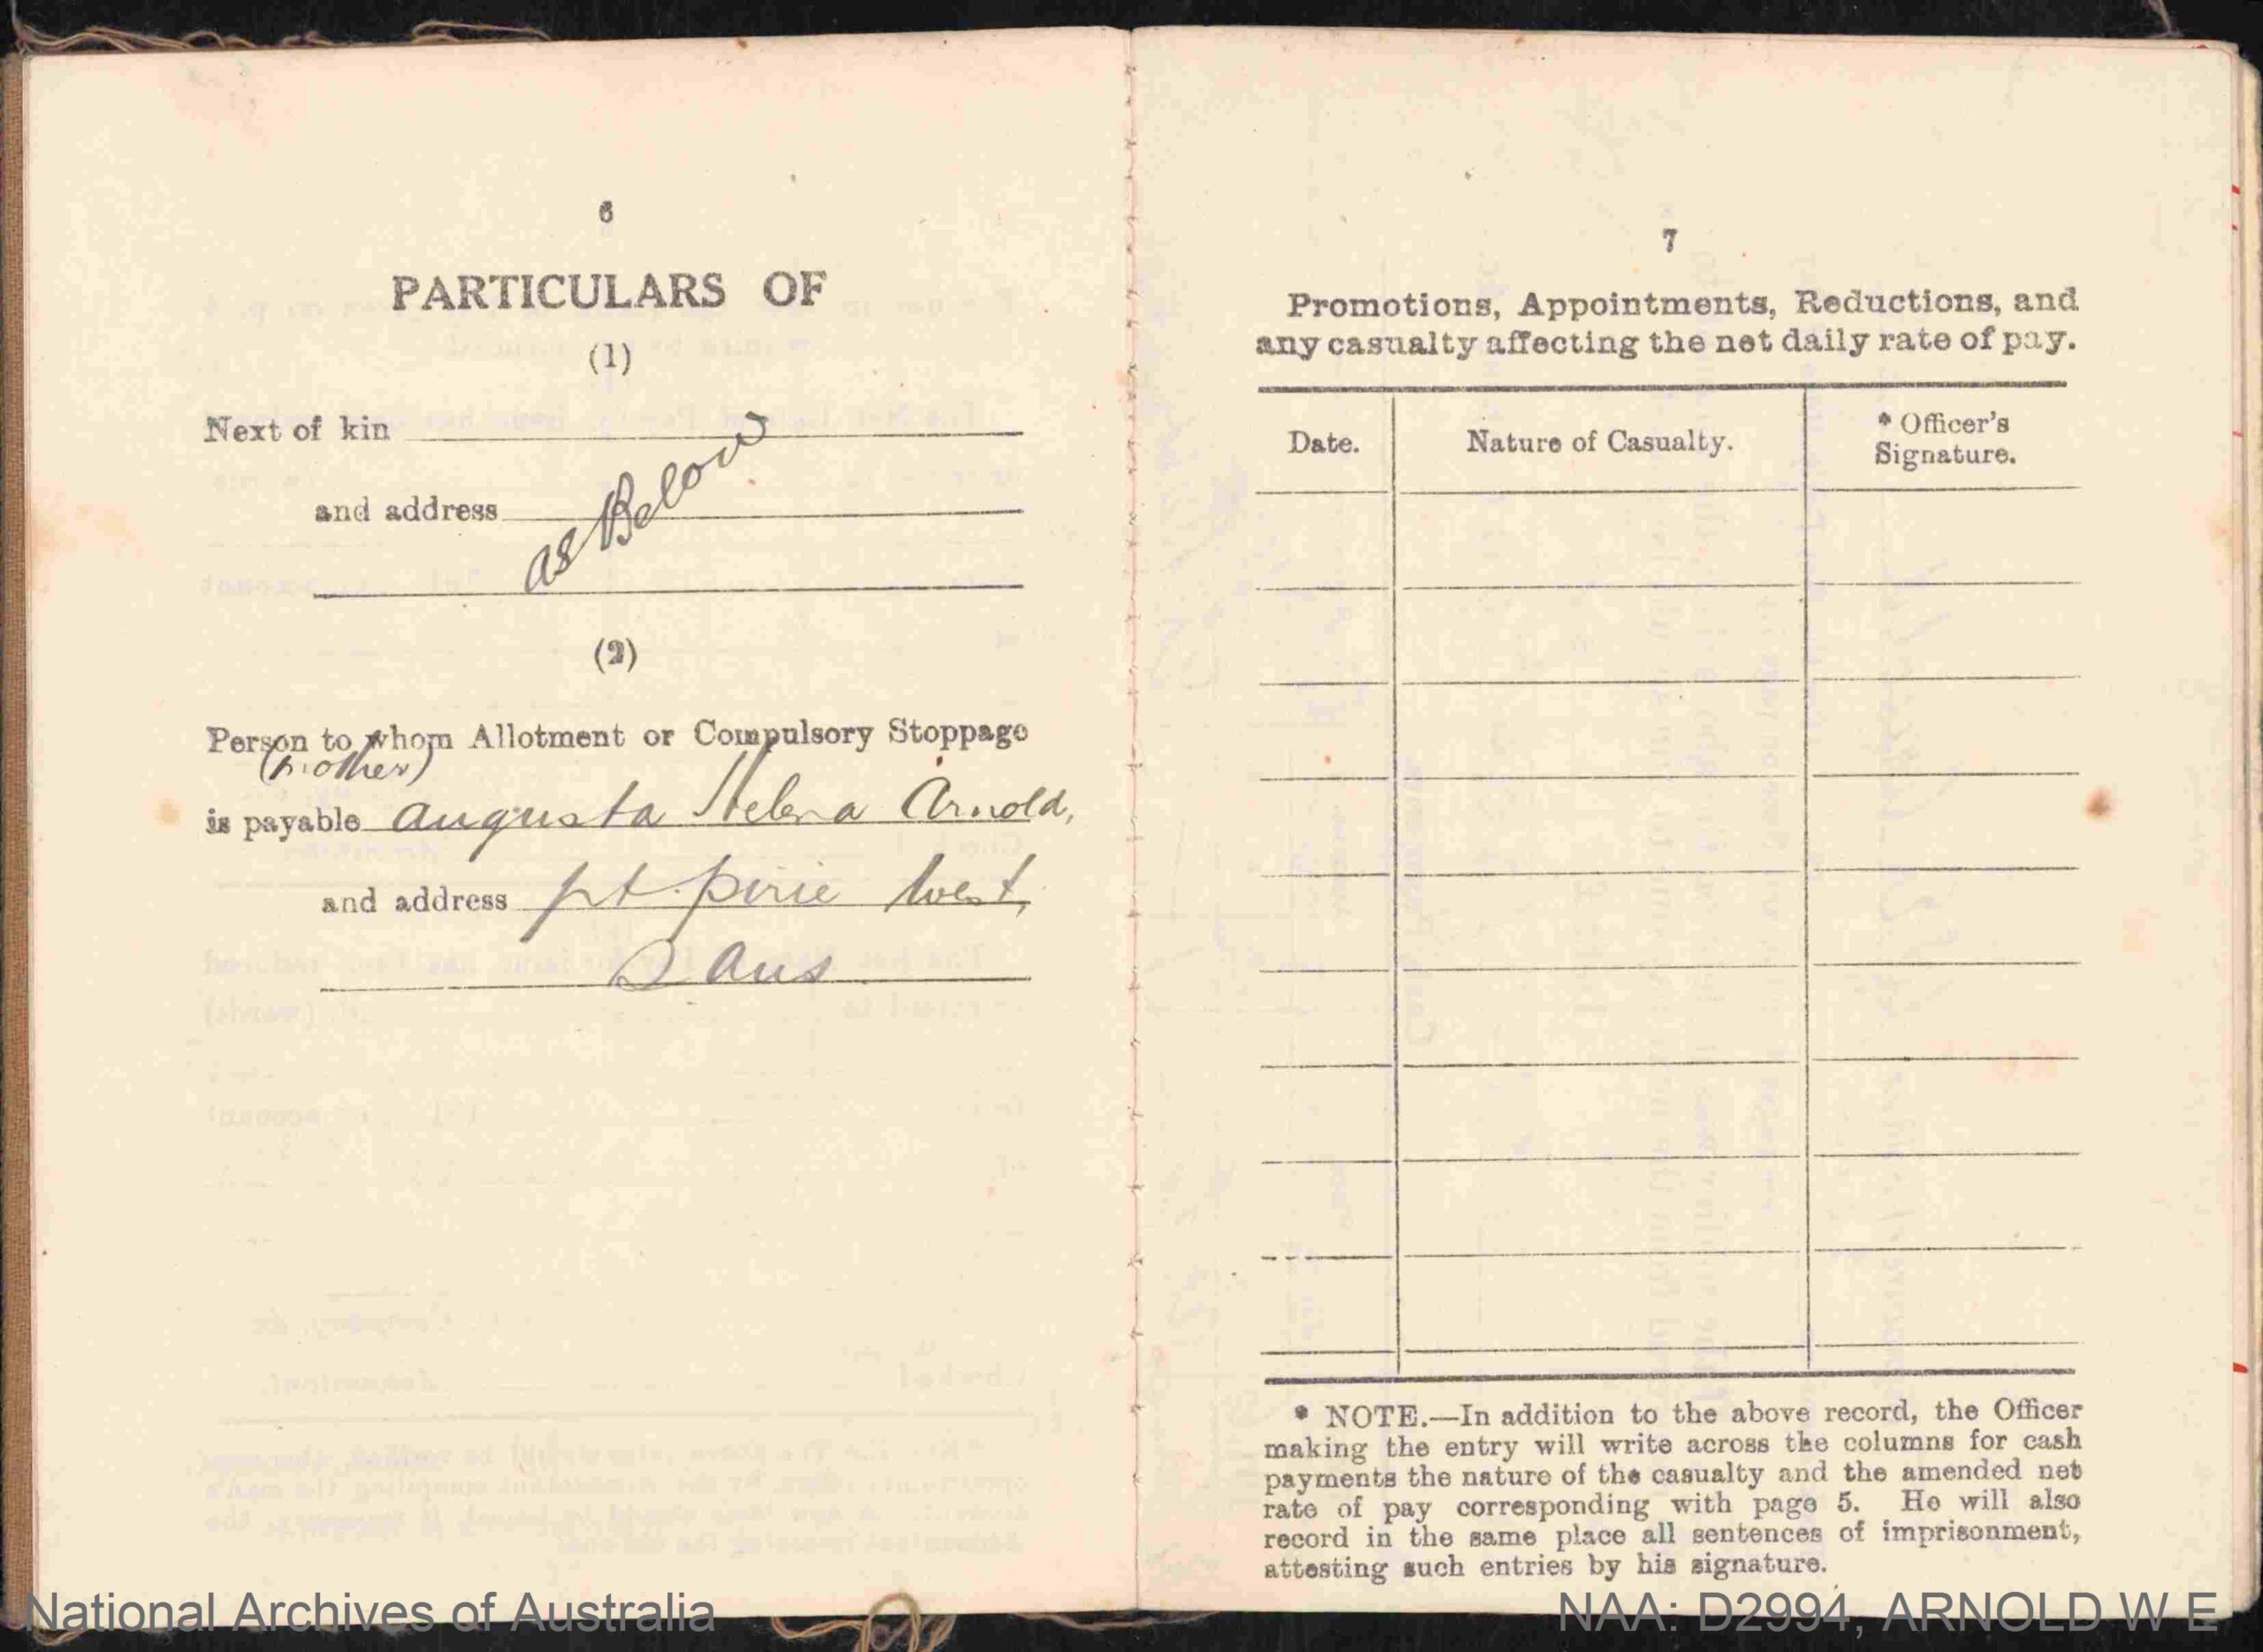 6
PARTICULARS OF
(1)
Next of kin
as Below
and address
(2)
Person to whom Allotment or Compulsory Stoppage
(mother)
is payable Augusta Helena Arnold,
and address pt. pirie West,
S Aus
7
Promotions, Appointments, Reductions, and
any casualty affecting the net daily rate of pay.
Date. Nature of Casualty. * Officer's
Signature.
* NOTE.—In addition to the above record, the Officer
making the entry will write across the columns for cash
payments the nature of the casualty and the amended net
rate of pay corresponding with page 5. He will also
record in the same place all sentences of imprisonment,
attesting such entries by his signature.
National Archives of Australia
NAA: D2994, ARNOLD W E